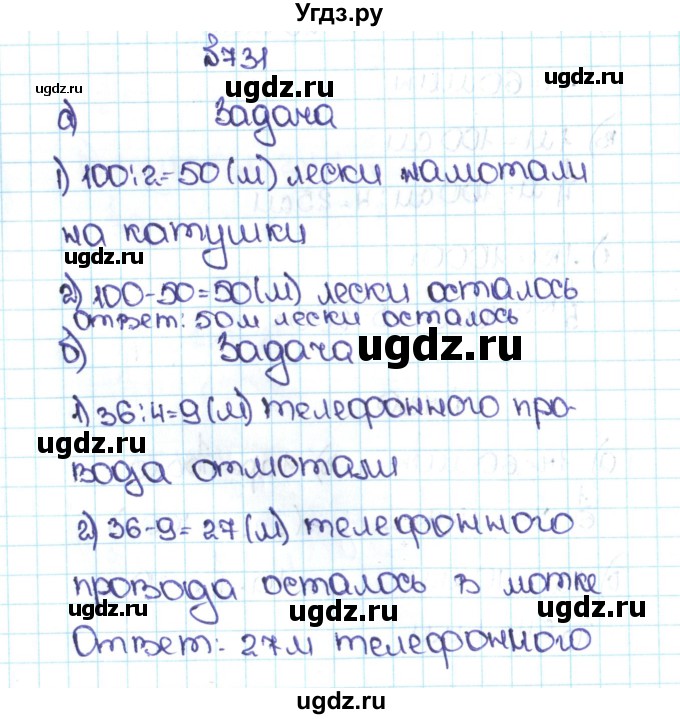 Угдз.ру
№731
ugdz.ru ugdz.ru ugdz.ru
а) Задача
1) 100:2=50(м) лески намотали
на катушки
ugdz.ru
2) 100-50=50(м) лески осталось
Ответ: 50м лески осталось
б) Задача ugdz.ru
1) 36:4=9(м) телефонного про-
ugdz.ru
вода отмотали
2) 36-9=27(м) телефонного
провода осталось в мотке
ugdz.ru ugdz.ru ugdz.ru
Ответ: 27м телефонного
ugdz.ru